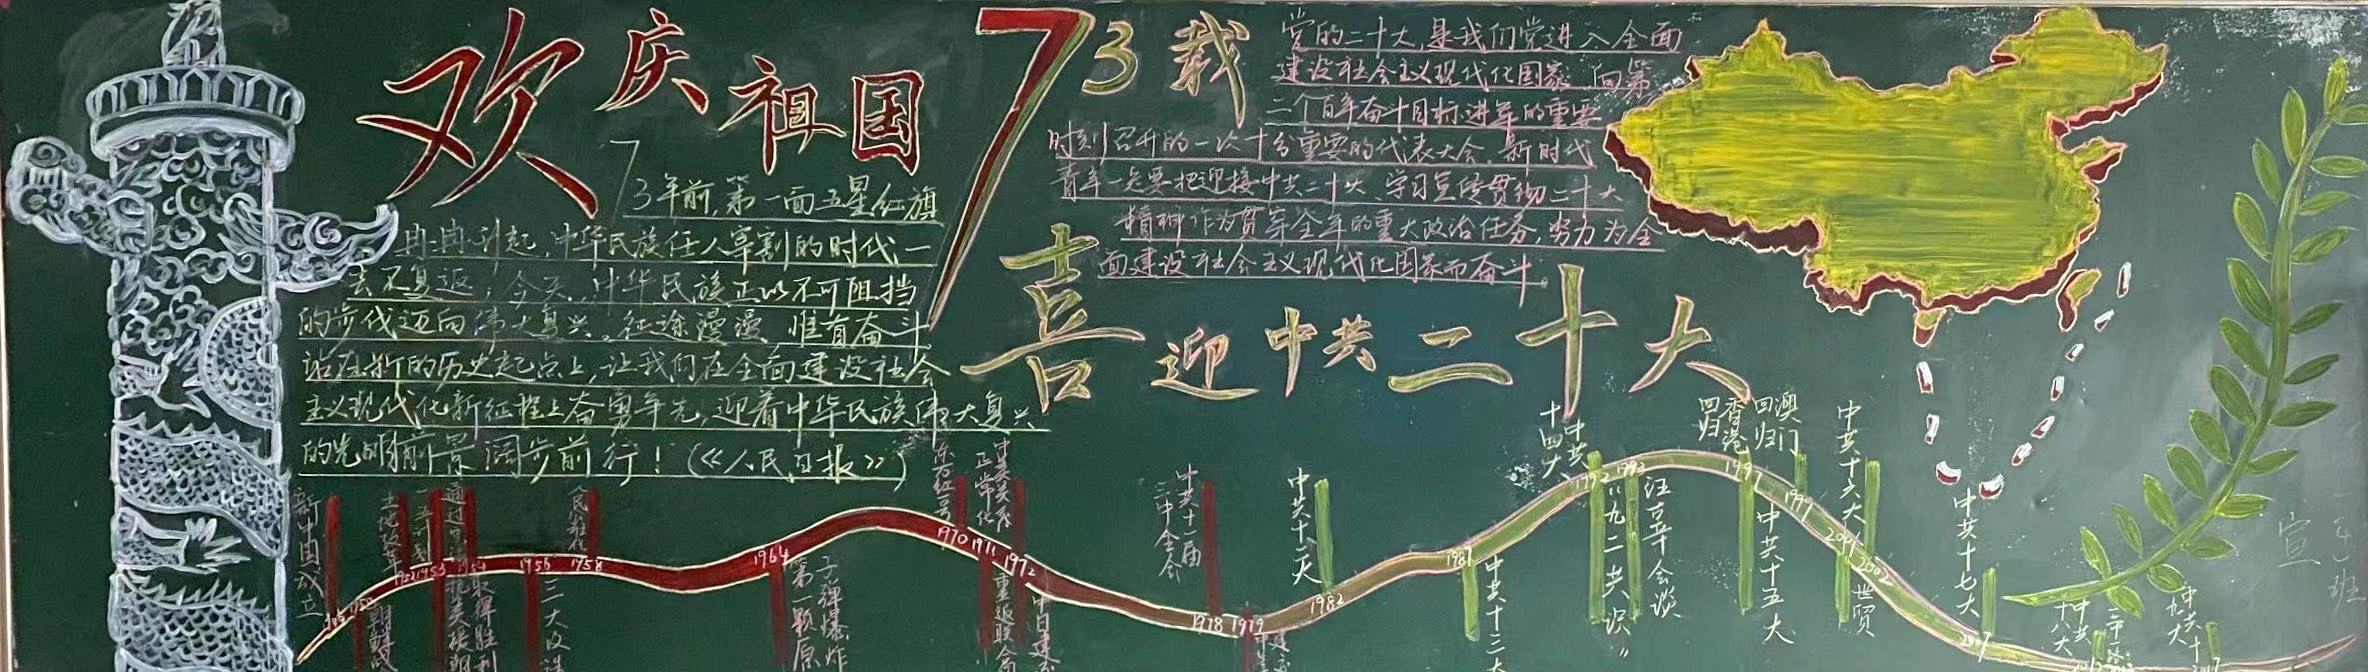 欢庆祖国73载
73年前,第一面五星红旗
冉冉升起,中华民族任人宰割的时代一
去不复返;今天,中华民族正以不可阻挡
的步伐迈向伟大复兴。征途漫漫,惟有奋斗
站在新的历史起点上,让我们在全面建设社会
主义现代化新征程上奋勇争先,迎着中华民族伟大复兴
的光明前景阔步前行!(《人民日报》)
党的二十大,是我们党进入全面
建设社会主义现代化国家、向第
二个百年奋斗目标进军的重要
时刻召开的一次十分重要的代表大会。新时代
青年一定要把迎接中共二十大、学习宣传贯彻二十大
精神作为贯穿全年的重大政治任务,努力为全
面建设社会主义现代化国家而奋斗。
喜迎中共二十大
新中国成立
1949
1950
土地改革
1952
1953
1954
抗美援朝
取得胜利
1956
三大改造
人民公社
1958
1964
第一颗原子弹爆炸
东方红一号
1970
1971
重返联合
中美关系
正常化
1972
中日建
中共十一届
三中全会
1978
1979
中美建
中共十二大
1982
1987
中共十三大
中共
十四大
1992
"九二共识"
1993
汪辜会谈
香港
回归
1997
中共十五大
澳门
回归
1999
2001
世贸
中共十六大
2002
中共十七大
2007
中共
十八大
2012
中共十
九大
2017
宣
班